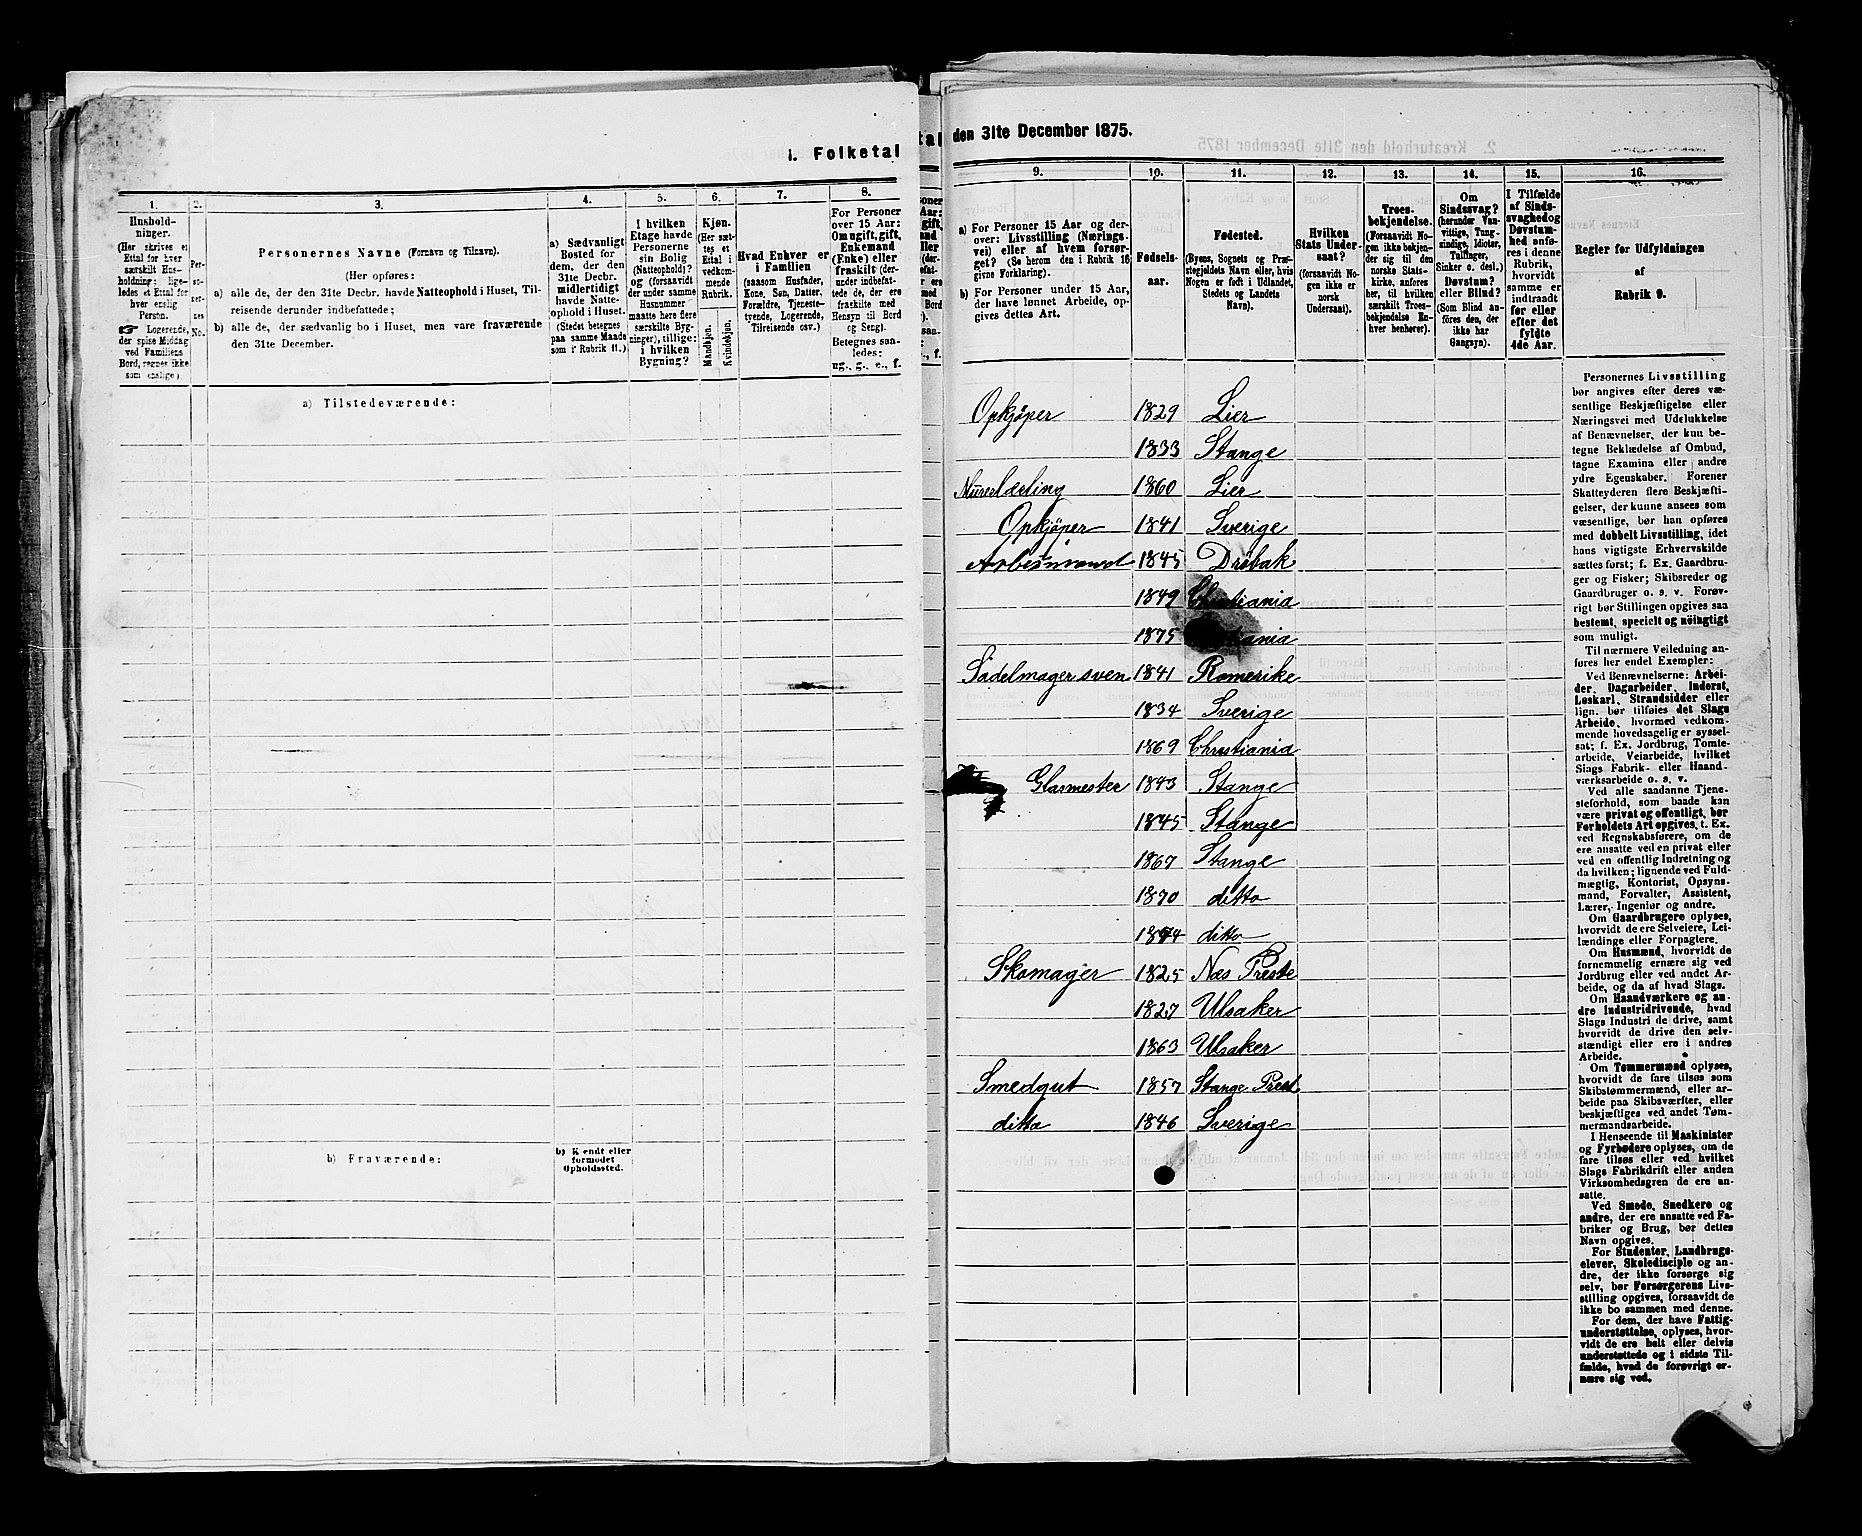 1. Folketal
1.
2.
3.
4.
5.
6.
7.
8.
Hushold-
ninger.
(Her skrives et
Ettal for hver
særskilt Hus-
holdning; lige-
ledes et Ettal for
hver enslig
Person.
☛ Logerende,
der spise Middag
ved Familiens
Bord, regnes ikke
som enslige)
Per-
so-
ner-
nes
No.
Personernes Navne (Fornavn og Tilnavn).
(Her opføres:
a) alle de, der den 31te Decbr. havde Natteophold i Huset, Til-
reisende derunder indbefattede;
b) alle de, der sædvanlig bo i Huset, men vare fraværende
den 31te December.
a) Sædvanligt
Bosted for
dem, der den
31te Decbr.
midlertidigt
havde Natte-
ophold i Huset.
(Stedet betegnes
paa samme Maade
som i Rubrik 11.)
I hvilken
Etage havde
Personerne
sin Bolig
(Natteophold)?
og (forsaavidt
der under samme
Husnummer
maatte høre flere
særskilte Byg-
ninger), tillige:
i hvilken
Bygning?
Kjøn.
(Her sæt-
tes et
Ettal i
vedkom-
mende
Rubrik.
Mandkjøn.
Kvindekjøn.
Hvad Enhver er
i Familien
(saasom Husfader,
Kone, Søn, Datter,
Forældre, Tjeneste-
tyende, Logerende,
Tilreisende osv.)
For Personer
over 15 Aar:
Om ugift, gift,
Enkemand
(Enke) eller
fraskilt (der-
under indbefat-
tede de, der ere
fraskilte med
Hensyn til Bord
og Seng).
Betegnes saa-
ledes:
ug., g., e., f.
a) Tilstedeværende:
b) Fraværende:
b) Kjendt eller
formodet
Opholdssted.
den 31te December 1875.
9.
10.
11.
12.
13.
14.
15.
16.
a) For Personer 15 Aar og der-
over: Livsstilling (Nærings-
vei) eller af hvem forsør-
get? (Se herom den i Rubrik 16
givne Forklaring).
b) For Personer under 15 Aar,
der have lønnet Arbeide, op-
gives dettes Art.
Fødsels-
aar.
Fødested.
(Byens, Sognets og Præ-
stegjeldets Navn eller, hvis
Nogen er født i Udlandet,
Stedets og Landets
Navn).
Hvilken
Stats Under-
saat?
(forsaavidt No-
gen ikke er
norsk
Undersaat).
Troes-
bekjendelse.
(Forsaavidt No-
gen ikke bekjen-
der sig til den
norske Stats-
kirke, anføres
her, til hvilken
særskilt Troes-
bekjendelse En-
hver henhører).
Om
Sindssvag?
(herunder Van-
vittige, Tung-
sindige, Idioter,
Tullinger,
Sinker o. desl.)
Døvstum?
eller Blind?
(Som Blind an-
føres den, der
ikke har
Gangsyn).
I Tilfælde
af Sinds-
svaghed og
Døvstum-
hed anfø-
res i denne
Rubrik,
hvorvidt
samme er
indtraadt
før eller
efter det
fyldte
4de Aar.
Regler for Udfyldningen
af
Rubrik 9.
Opkjøper 1829 Lier
1833 Stange
Murerlærling 1860 Lier
Opkjøper 1841 Sverige
Arbeismand 1845 Drøbak
1849 Christiania
1875
Sadelmagersven 1841 Romerike
1834 Sverige
1869 Christiania
Glasmester 1843 Stange
1845 Stange
1867 Stange
1870 ditto
1874 ditto
Skomager 1825 Næs Preste
1827 Ulsaker
1863 Ulsaker
Smedgut 1857 Stange Prest
ditto 1846 Sverige
Personernes Livsstilling
bør angives efter deres væ-
sentlige Beskjæftigelse eller
Næringsvei med Udelukkelse
af Benævnelser, der kun be-
tegne Beklædelse af Ombud,
tagne Examina eller andre
ydre Egenskaber. Forener
Skatteyderen flere Beskjæfti-
gelser, der kunne ansees som
væsentlige, bør han opføres
med dobbelt Livsstilling, idet
hans vigtigste Erhvervskilde
sættes først; f. Ex. Gaardbru-
ger og Fisker; Skibsreder og
Gaardbruger o. s. v. Forøv-
rigt bør Stillingen opgives saa
bestemt, specielt og nöiagtigt
som muligt.
Til nærmere Veiledning an-
føres her endel Exempler:
Ved Benævnelserne: Arbei-
der, Dagarbeider, Inderst,
Løskarl, Strandsidder eller
lign. bør tilføies det Slags
Arbeide, hvormed vedkom-
mende hovedsagelig er syssel-
sat; f. Ex. Jordbrug, Tomte-
arbeide, Veiarbeide, hvilket
Slags Fabrik- eller Haand-
værksarbeide o. s. v.
Ved alle saadanne Tjene-
steforhold, som baade kan
være privat og offentligt, bør
Forholdets Art opgives, t. Ex.
ved Regnskabsførere, om de
ere ansatte ved en privat eller
ved en offentlig Indretning og
da hvilken; lignende ved Fuld-
mægtig, Kontorist, Opsyns-
mand, Forvalter, Assistent,
Lærer, Ingeniør og andre.
Om Gaardbrugere oplyses,
hvorvidt de ere Selveiere, Lei-
lændinge eller Forpagtere.
Om Husmænd, hvorvidt de
fornemmelig ernære sig ved
Jordbrug eller ved andet Ar-
beide, og da af hvad Slags.
Om Haandværkere og an-
dre Industridrivende, hvad
Slags Industri de drive, samt
hvorvidt de drive den selv-
stændigt eller ere i andres
Arbeide.
Om Tømmermænd oplyses,
hvorvidt de fare tilsøs som
Skibstømmermænd, eller ar-
beide paa Skibsværfter, eller
beskjæftiges ved andet Tøm-
mermandsarbeide.
I Henseende til Maskinister
og Fyrbødere oplyses, om de
fare tilsøs eller ved hvilket
Slags Fabrikdrift eller anden
Virksomhedsgren de ere an-
satte.
Ved Smede, Snedkere og
andre, der ere ansatte ved Fa-
briker og Brug, bør dettes
Navn opgives.
For Studenter, Landbrugs-
elever, Skoledisciple og an-
dre, der ikke forsørge sig
selv, bør Forsørgerens Livs-
stilling opgives, forsaavidt de
ikke bo sammen med denne.
For dem, der have Fattig-
understøttelse, oplyses, hvor-
vidt de ere helt eller delvis
understøttede og i sidste Til-
fælde, hvad de forøvrigt er-
nære sig ved.